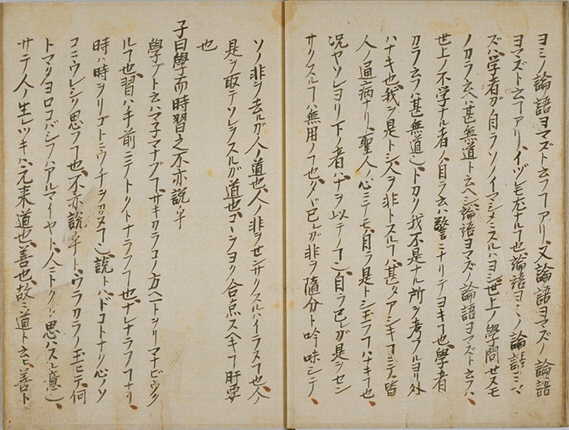 ヨミノ論語ヨマズト云フヿアリ、又論語ヨマズノ論語
ヨマズト云フヿアリ、イヅレモ 也論語ヨミノ論語ヨミ
ズハ学者ガ自ラソノイマシメニスルハヨシ世上ノ學問セヌモ
ノカラ云フハ甚無道ト云ヘシ論語ヨマズノ論語ヨマズト云フハ、
世上ノ不学ナル者、自ラ云ハ警ニナリテヨキヿ也學者
カラ云フハ甚無道、トカク我不是ナル所ヲ考フルヨリ外
ハナキ也我ヲ是トシ人ヲ非トスルハ甚タアシキヿニテ皆
人ノ通病ナリ、聖人ノ心ニモ自ラ是トシ玉フヿハナキヿ也
况ヤソレヨリ下ノ者ナヲ以テノヿ、自ラ已レガ是ヲセン
サクスルヿハ無用ノヿ也タヾ已レガ非ヲ隨分ト吟味シテ、
ソノ非ヲ去ルガ人ノ道也、人ノ非ヲセンサクスルハイラヌヿ也人ノ
是ヲ取テソレヲスルガ道也、コヽラヨク合点スヘキヿ肝要
也
子曰學而時習之不亦説乎
學ブト云ハマ子マナブヿ、サキカラコノ方ヘトツリマナビウク
ルヿ也、習ハ手前ニテ ナラフヿ也、ナレナラフヿナリ、
時ハ時ヲリゴトニウチヲカヌヿ、説トハドコトナリ心ノソ
コニウレシク思フヿ也、不亦説乎ト、ウラカラノ玉ヒテ何
トマタヨロコバシフハアルマイヤト、人ニトクト思ハスル意、
サテ人ノ生レツキハ元来道也善也、故ニ道ト云ヒ善ト